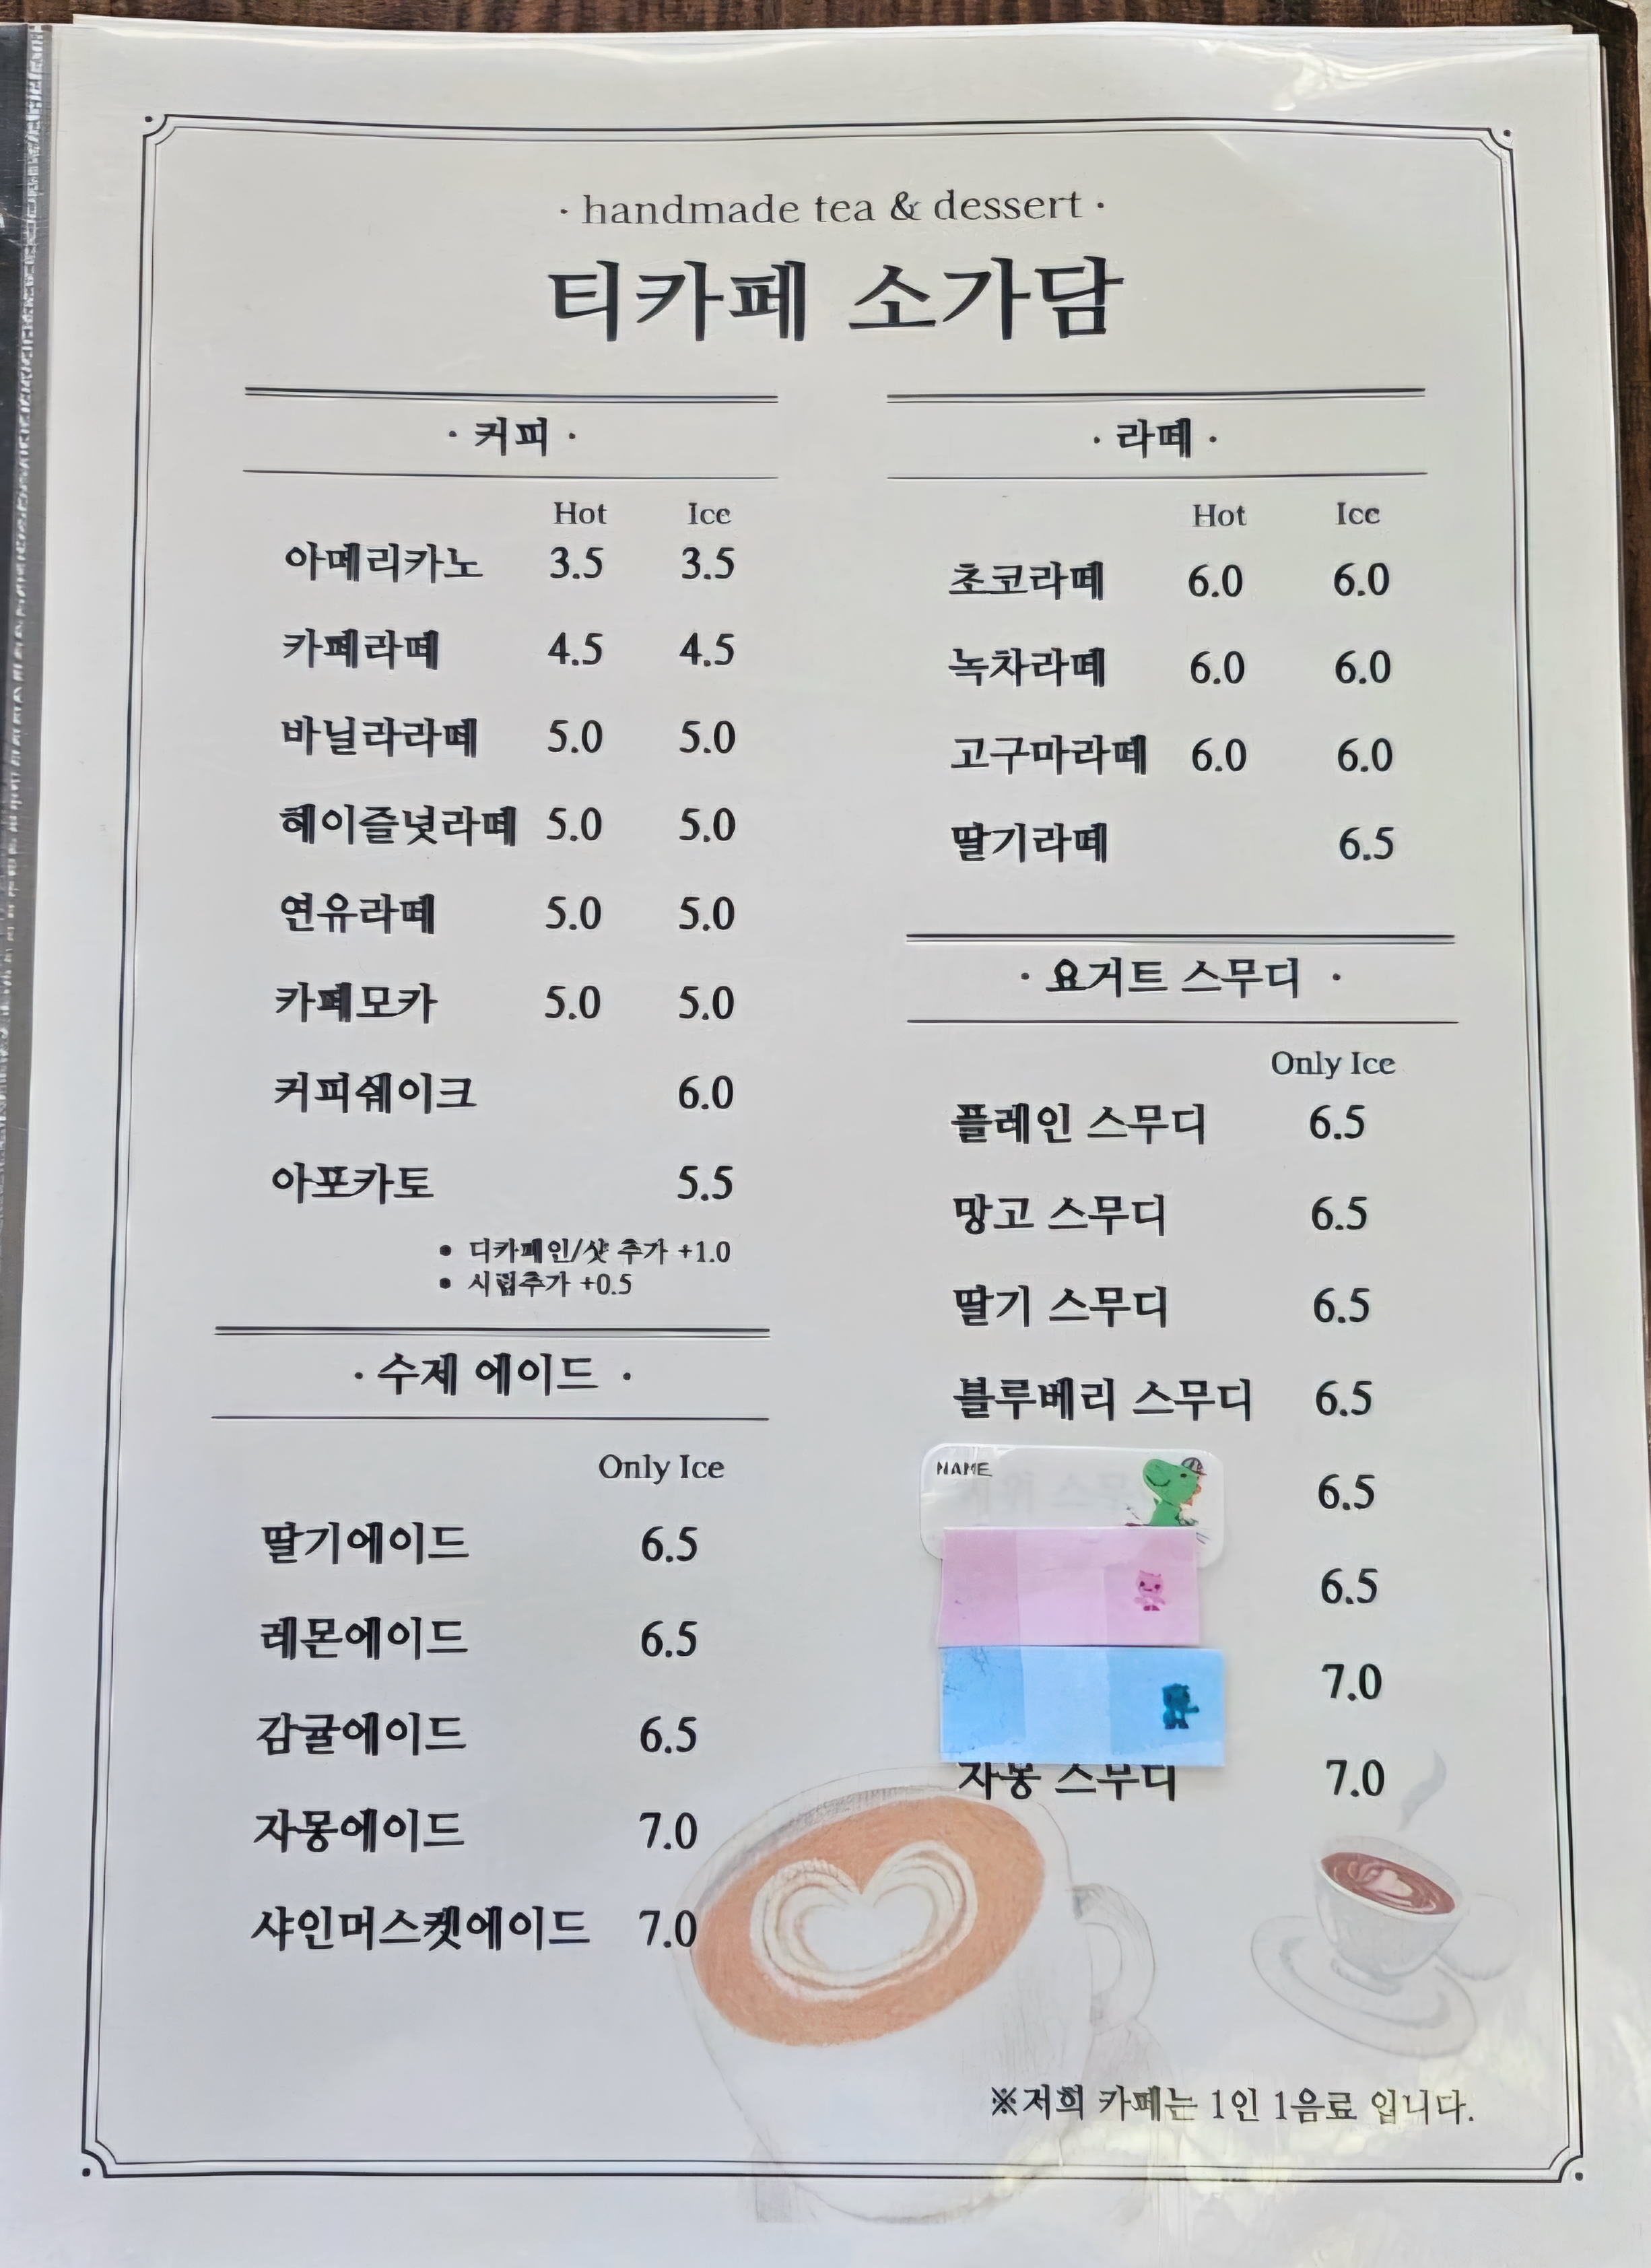 · handmade tea & dessert ·
티카페 소가담
· 커피 ·
Hot Ice
아메리카노 3.5 3.5
카페라떼 4.5 4.5
바닐라라떼 5.0 5.0
헤이즐넛라떼 5.0 5.0
연유라떼 5.0 5.0
카페모카 5.0 5.0
커피쉐이크 6.0
아포카토 5.5
• 디카페인/샷 추가 +1.0
• 시럽추가 +0.5
· 수제 에이드 ·
Only Ice
딸기에이드 6.5
레몬에이드 6.5
감귤에이드 6.5
자몽에이드 7.0
샤인머스켓에이드 7.0
· 라떼 ·
Hot Ice
초코라떼 6.0 6.0
녹차라떼 6.0 6.0
고구마라떼 6.0 6.0
딸기라떼 6.5
· 요거트 스무디 ·
Only Ice
플레인 스무디 6.5
망고 스무디 6.5
딸기 스무디 6.5
블루베리 스무디 6.5
NAME 6.5
6.5
7.0
자몽 스무디 7.0
※저희 카페는 1인 1음료 입니다.